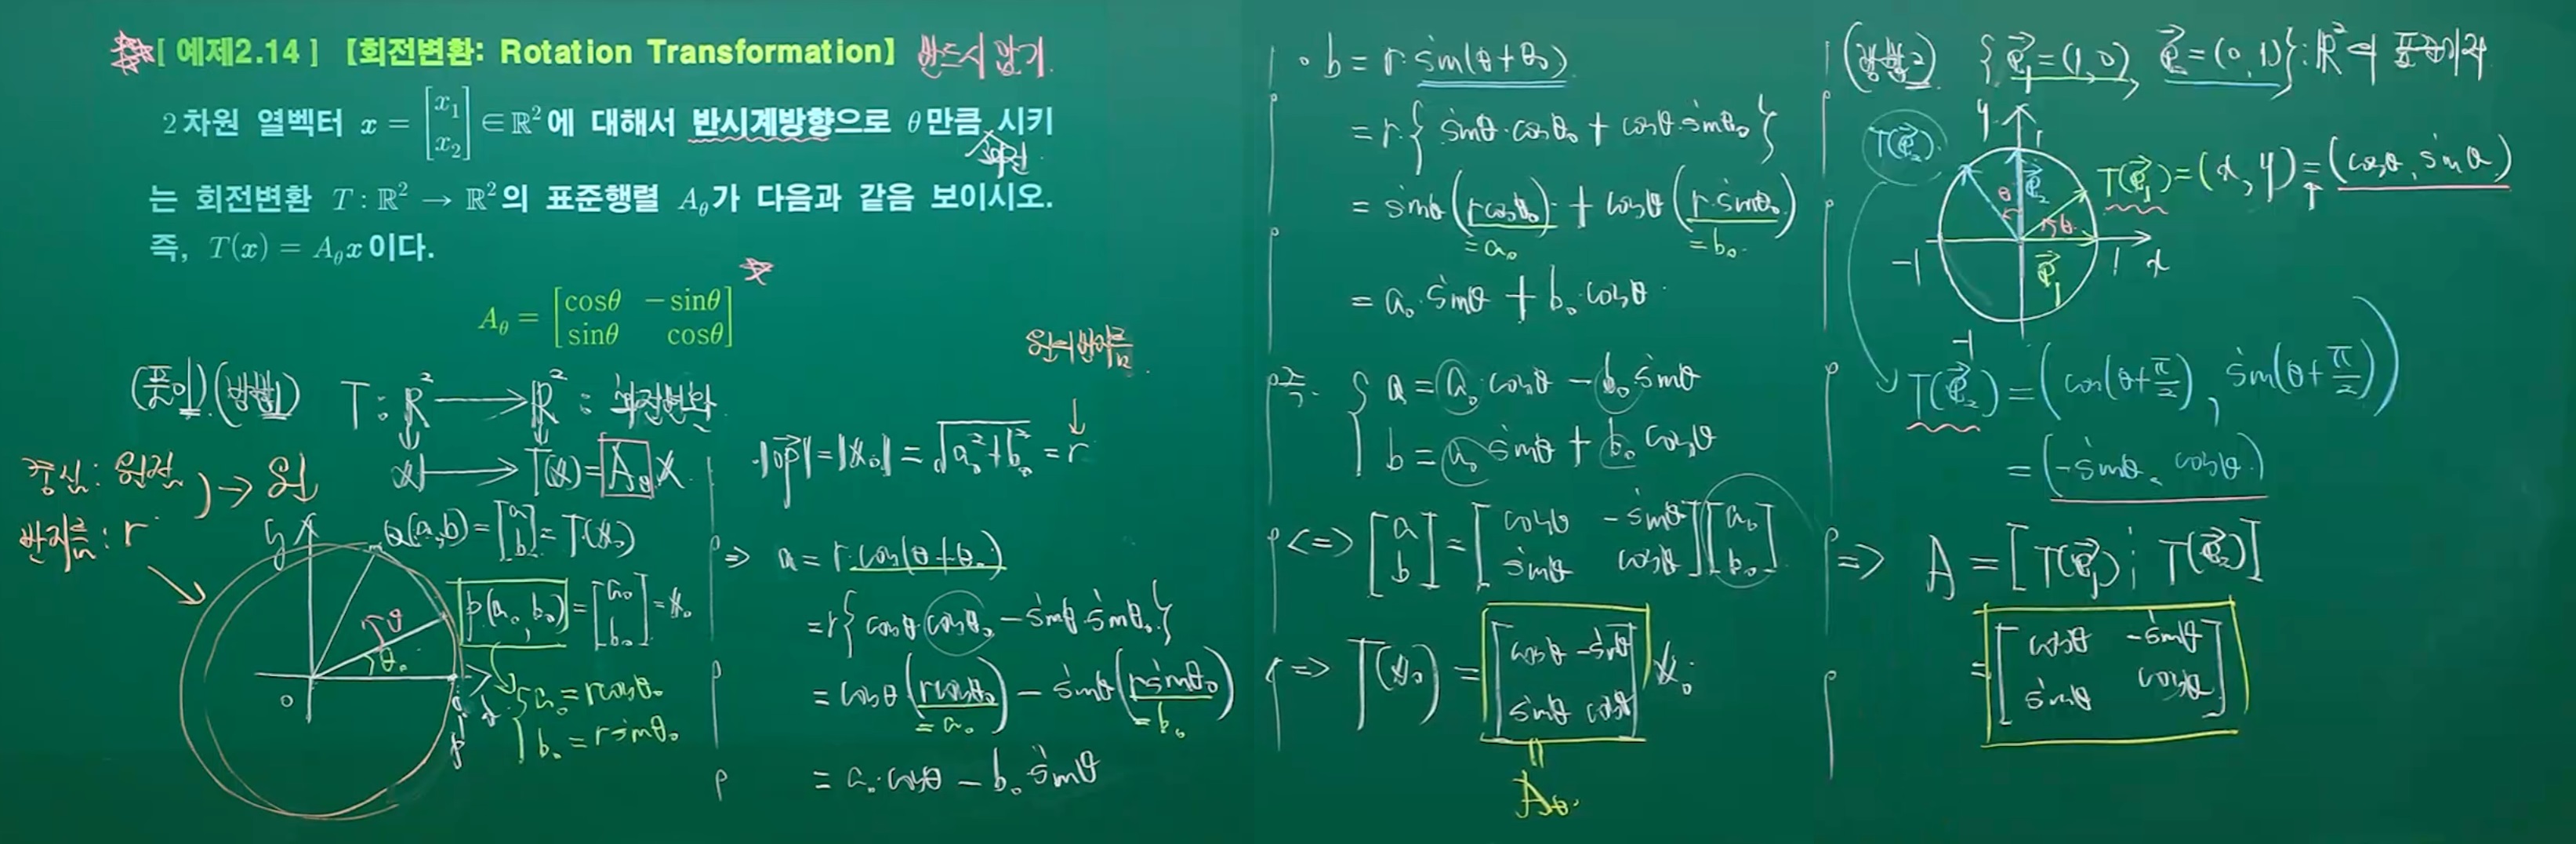 [ 예제2.14 ] 【회전변환: Rotation Transformation】 반드시 암기.
2차원 열벡터 x = [x₁ x₂] ∈ ℝ² 에 대해서 반시계방향으로 θ만큼 시키
회전
는 회전변환 T : ℝ² → ℝ²의 표준행렬 A_θ가 다음과 같음 보이시오.
즉, T(x) = A_θx 이다.
A_θ = [cosθ −sinθ
sinθ cosθ]
(풀이) (방법1) T : ℝ² → ℝ² : 회전변환
x → T(x) = A_θ x
중심 : 원점
반지름 : r
) → 원
y
Q(a,b) = [a b] = T(x₀)
p(a₀, b₀) = [a₀ b₀] = x₀
θ
θ₀
0
{ a₀ = r cosθ₀
b₀ = r sinθ₀
원의 반지름
↓
|op| = |x₀| = √(a₀² + b₀²) = r
⇒ a = r·cos(θ+θ₀)
= r{cosθ·cosθ₀ − sinθ·sinθ₀}
= cosθ(r cosθ₀) − sinθ(r sinθ₀)
= a₀ = b₀
= a₀·cosθ − b₀·sinθ
· b = r·sin(θ+θ₀)
= r·{sinθ·cosθ₀ + cosθ·sinθ₀}
= sinθ(r cosθ₀) + cosθ(r·sinθ₀)
= a₀ = b₀
= a₀·sinθ + b₀·cosθ
즉. { a = a₀·cosθ − b₀·sinθ
b = a₀ sinθ + b₀ cosθ
<=> [a b] = [cosθ −sinθ
sinθ cosθ] [a₀ b₀]
<=> T(x₀) = [cosθ −sinθ
sinθ cosθ] x₀
=
A_θ
(방법2) {e₁ = (1,0), e₂ = (0,1)} : ℝ²의 표준기저
y
1
T(e₂)
e₂
θ
T(e₁) = (x, y) = (cosθ, sinθ)
θ
−1
e₁
1 x
−1
T(e₂) = (cos(θ+π/2), sin(θ+π/2))
= (−sinθ, cosθ)
⇒ A = [T(e₁) ⋮ T(e₂)]
= [cosθ −sinθ
sinθ cosθ]